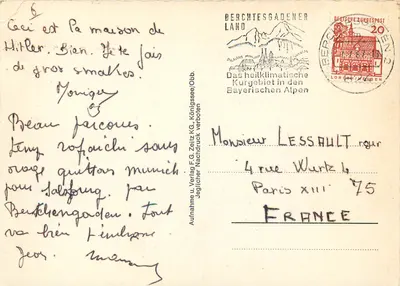 6
Ceci est la maison de
Hitler. Bien. Je te fais
de gros smakes.
Monique
Beau parcours.
Temps rafraichi sans
orage quittons munich
pour Salzburg. par
Berchtengaden. Tout
va bien
BERCHTESGADENER
LAND
Das heilklimatische
Kurgebiet in den
Bayerischen Alpen
BERCHTESGADEN 2
DEUTSCHE BUNDESPOST
20
LORSCH/HESSEN
Aufnahme u. Verlag F.G. Zeitz KG., Königssee/Obb.
Jeglicher Nachdruck verboten
Monsieur LESSAULT roger
4 rue Wurtz 4
Paris XIII 75
FRANCE